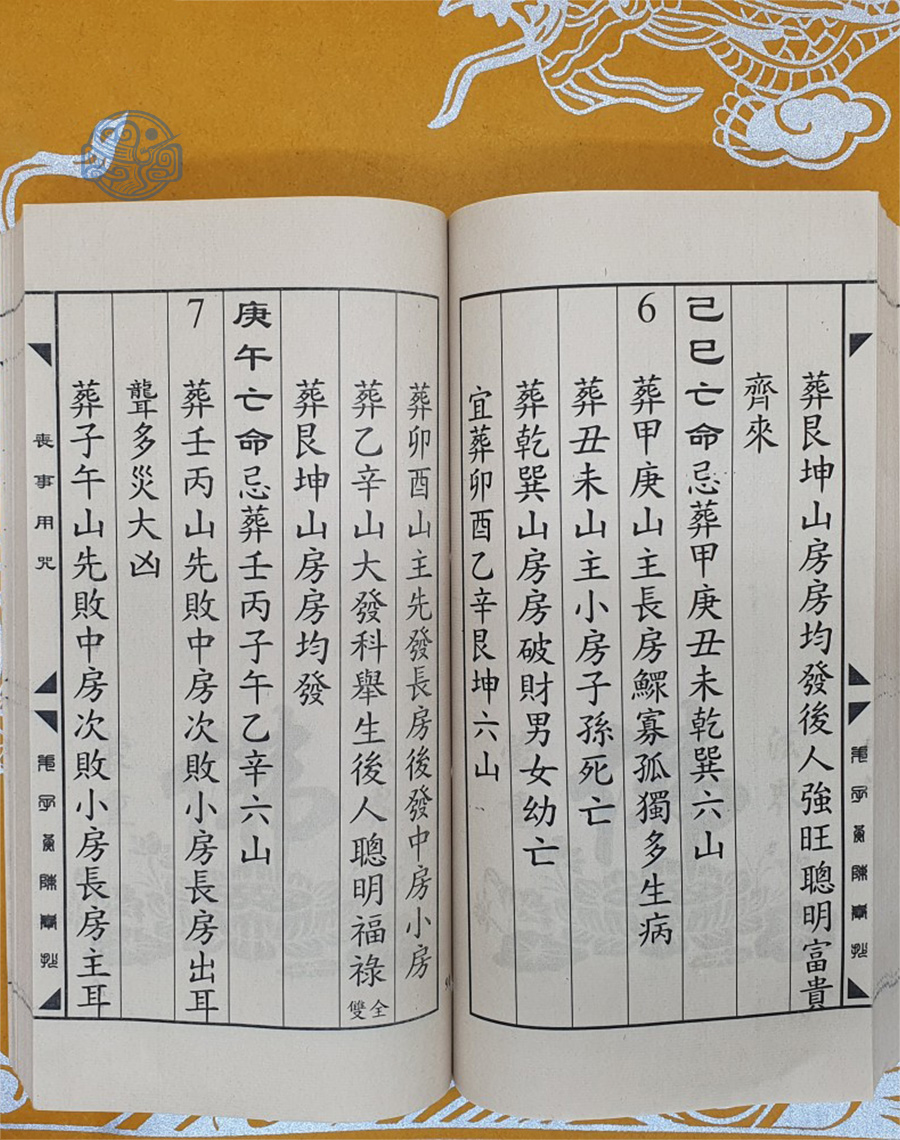 葬艮坤山房房均發後人強旺聰明富貴
齊來
己巳亡命忌葬甲庚丑未乾巽六山
6
葬甲庚山主長房鰥寡孤獨多生病
葬丑未山主小房子孫死亡
葬乾巽山房房破財男女幼亡
宜葬卯酉乙辛艮坤六山
葬卯酉山主先發長房後發中房小房
葬乙辛山大發科舉生後人聰明福祿
全雙
葬艮坤山房房均發
庚午亡命忌葬壬丙子午乙辛六山
7
葬壬丙山先敗中房次敗小房長房出耳
聾多災大凶
葬子午山先敗中房次敗小房長房主耳
喪事用咒